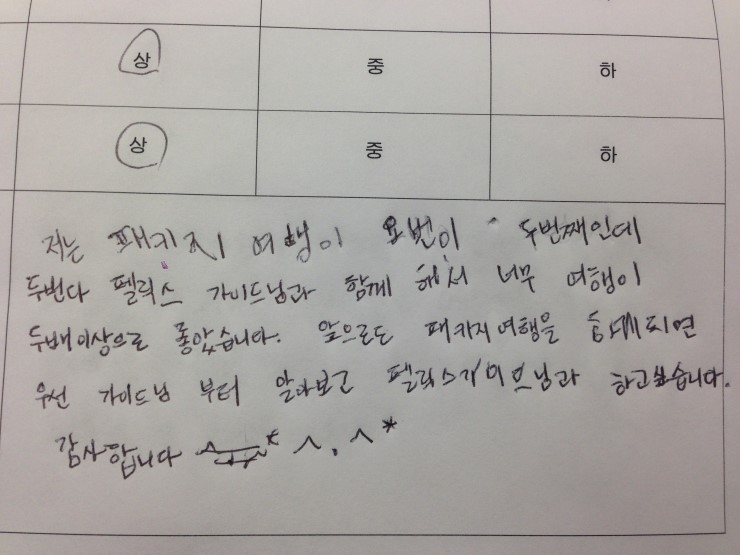 상 중 하
상 중 하
저는 패키지 여행이 요번이 두번째인데
두번다 펠릭스 가이드님과 함께 해서 너무 여행이
두배이상으로 좋았습니다. 앞으로도 패카지여행을 하게되면
우선 가이드님 부터 알아보고 펠릭스가이드님과 하고싶습니다.
감사합니다 ^.^*